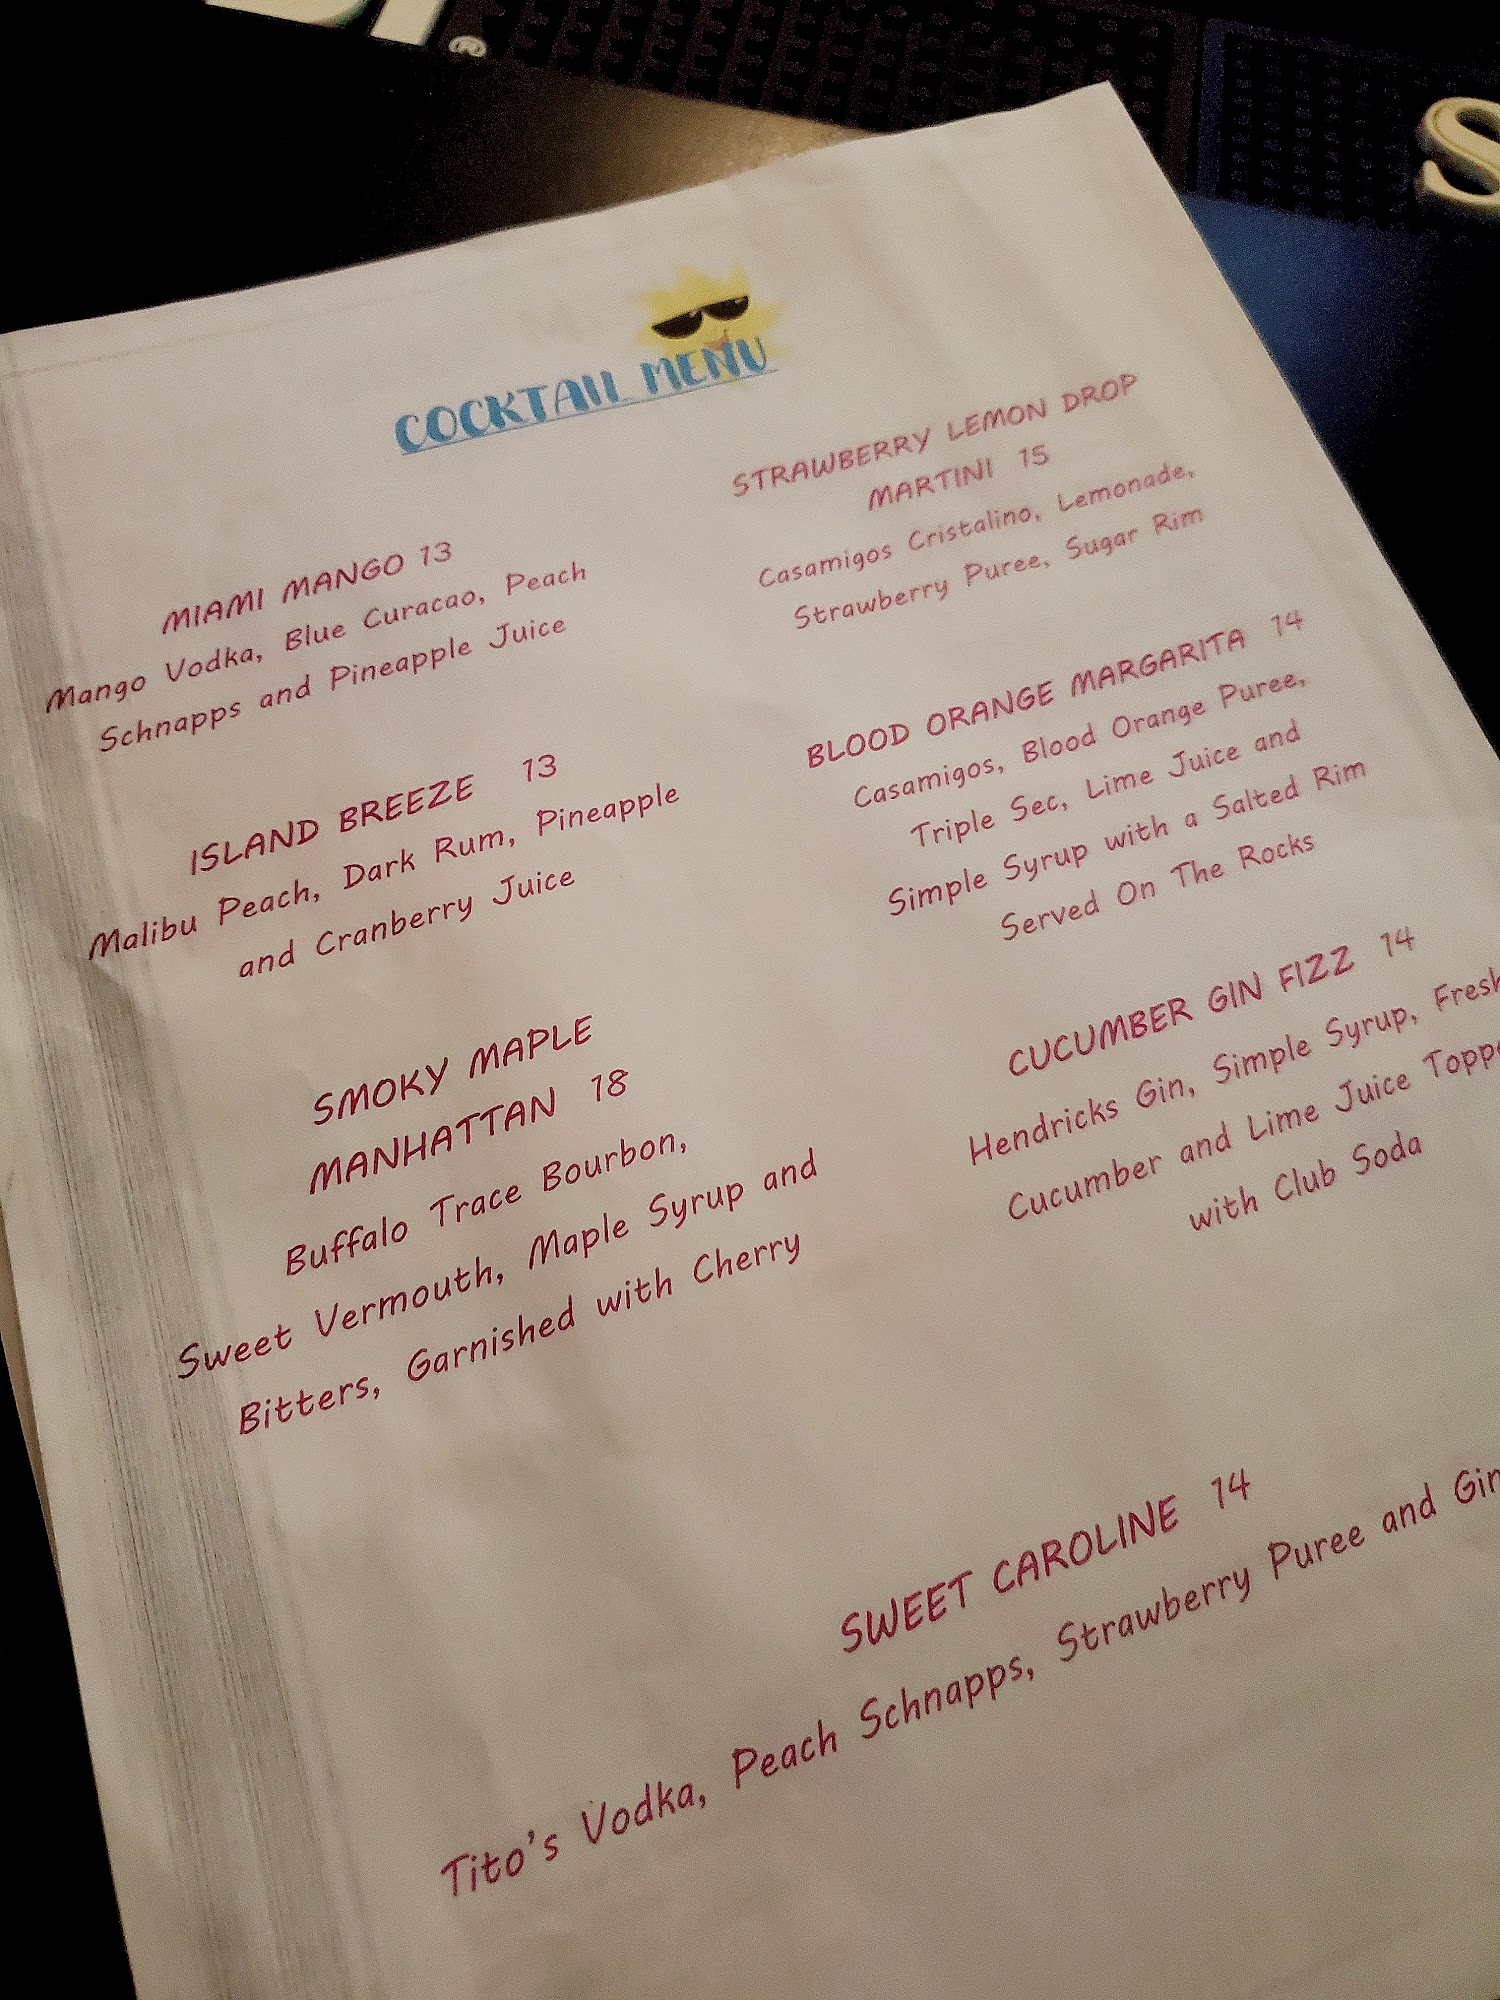 COCKTAIL MENU
MIAMI MANGO 13
Mango Vodka, Blue Curacao, Peach
Schnapps and Pineapple Juice
ISLAND BREEZE 13
Malibu Peach, Dark Rum, Pineapple
and Cranberry Juice
SMOKY MAPLE
MANHATTAN 18
Buffalo Trace Bourbon,
Sweet Vermouth, Maple Syrup and
Bitters, Garnished with Cherry
STRAWBERRY LEMON DROP
MARTINI 15
Casamigos Cristalino, Lemonade,
Strawberry Puree, Sugar Rim
BLOOD ORANGE MARGARITA 14
Casamigos, Blood Orange Puree,
Triple Sec, Lime Juice and
Simple Syrup with a Salted Rim
Served On The Rocks
CUCUMBER GIN FIZZ 14
Hendricks Gin, Simple Syrup, Fresh
Cucumber and Lime Juice
with Club Soda
SWEET CAROLINE 14
Tito's Vodka, Peach Schnapps, Strawberry Puree and